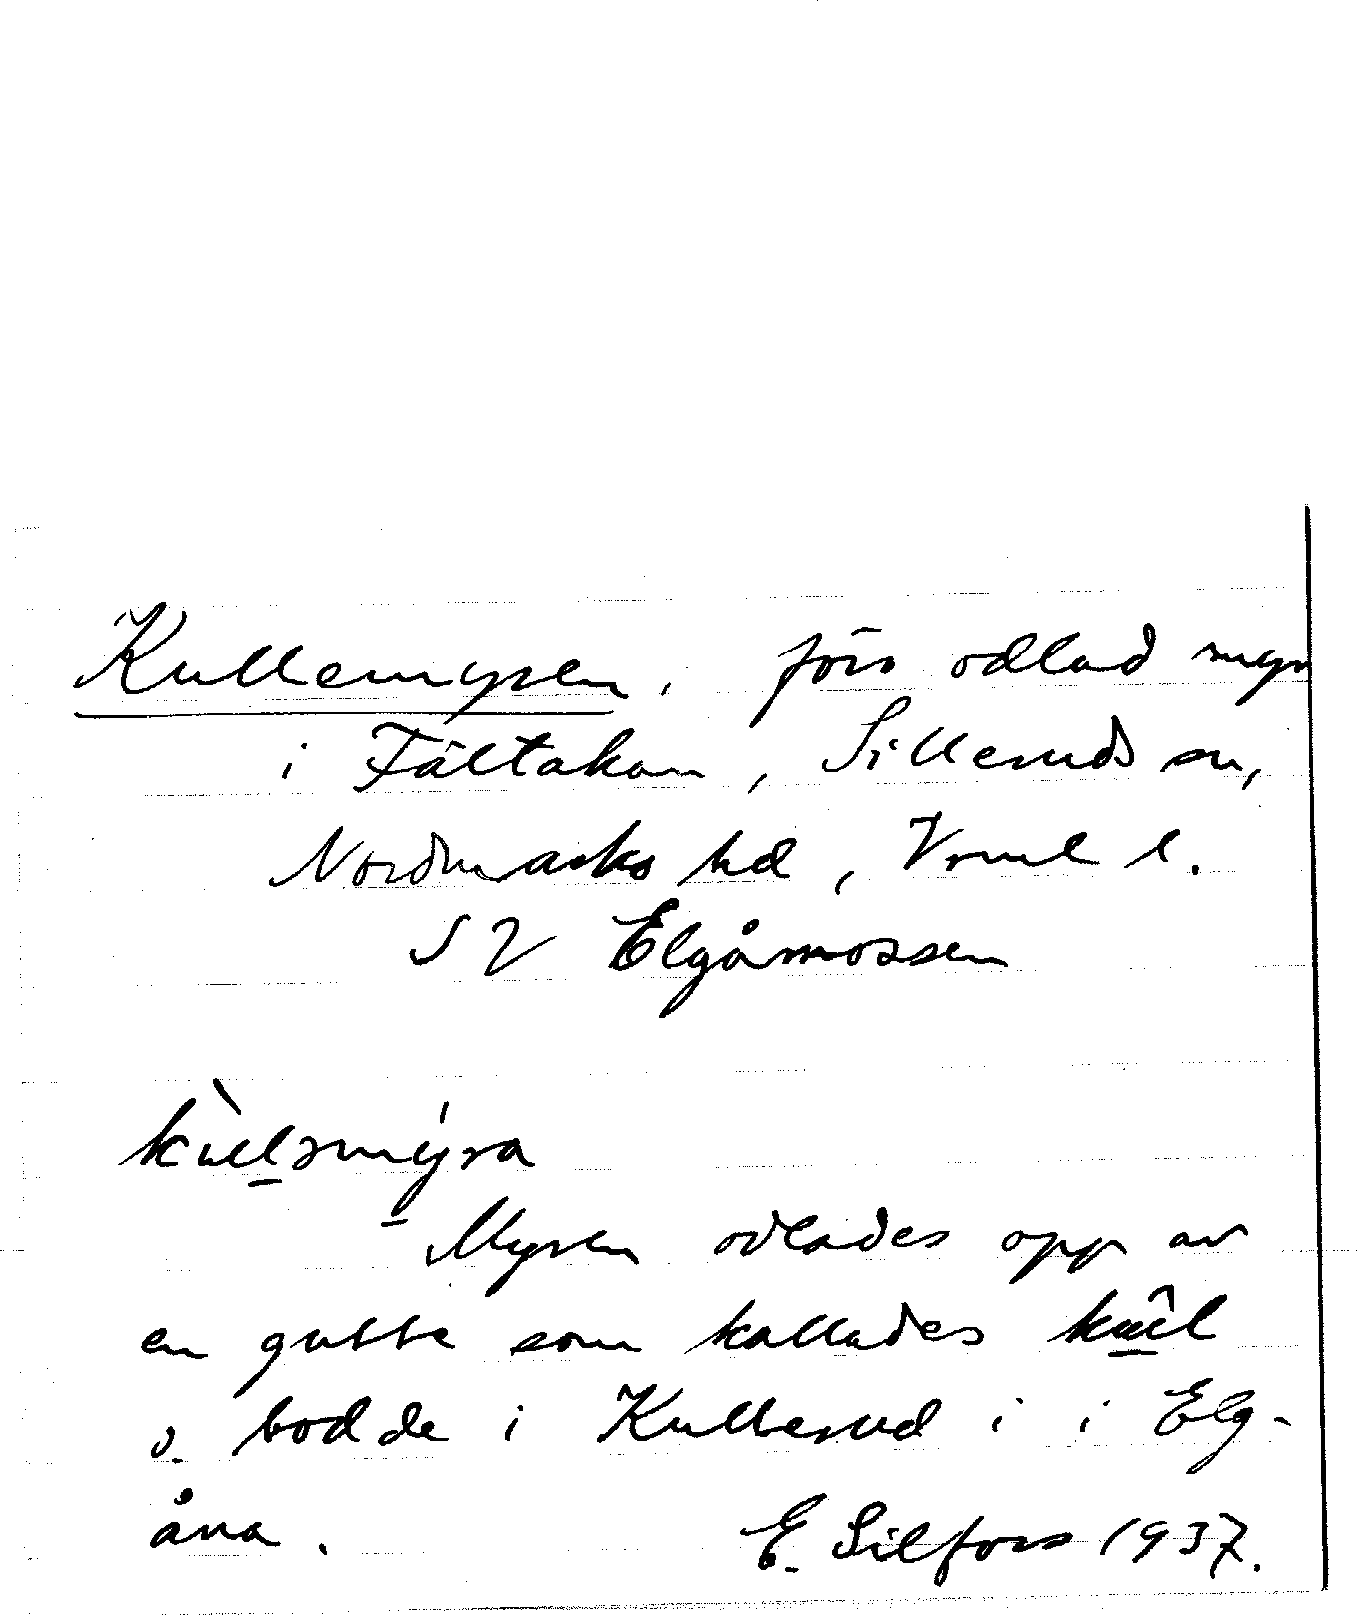 Kullemyren, förr odlad myr
i Fältakan, Silleruds sn,
Nordmarks hd, Vrml l.
SV Elgåmossen
kùllsmýra
Myren odlades opp av
en gubbe som kallades kûll
o. bodde i Kullerud i i Elg-
åna.
E. Silfors 1937.